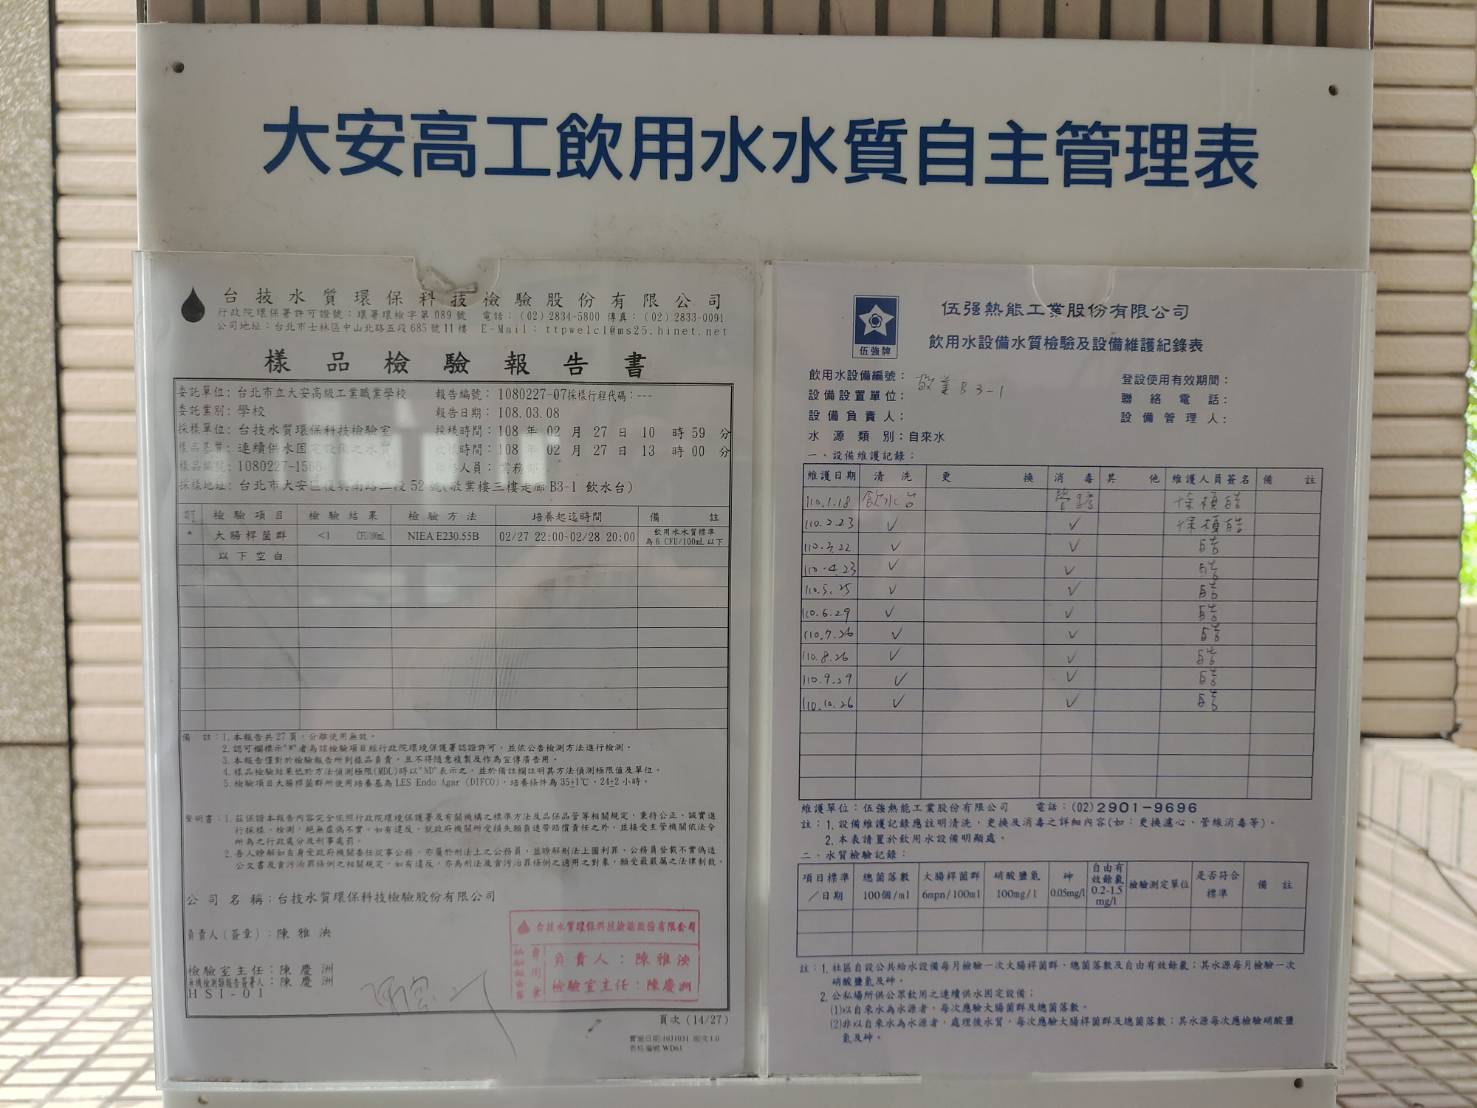 大安高工飲用水水質自主管理表
台技水質環保科技檢驗股份有限公司
行政院環保署許可證號：環署環檢字第089號 電話：(02)2834-5800 傳真：(02)2833-0091
公司地址：台北市士林區中山北路五段685號11樓 E-Mail：ttpwelcl@ms25.hinet.net
樣品檢驗報告書
委託單位：台北市立大安高級工業職業學校 報告編號：1080227-07採樣行程代碼：---
委託業別：學校 報告日期：108.03.08
採樣單位：台技水質環保科技檢驗室 採樣時間：108 年 02 月 27 日 10 時 59 分
樣品基質：連續供水固定設備之水質 收樣時間：108 年 02 月 27 日 13 時 00 分
樣品編號：1080227-15
採樣地址：台北市大安區復興南路二段52號(敬業樓三樓走廊B3-1 飲水台)
檢驗項目 檢驗結果 檢驗方法 培養起迄時間 備註
* 大腸桿菌群 <1 NIEA E230.55B 02/27 22:00~02/28 20:00 飲用水水質標準
為6 CFU/100mL以下
以下空白
備 註：1.本報告共27頁，分離使用無效。
2.認可欄標示"*"者為該檢驗項目經行政院環境保護署認證許可，並依公告檢測方法進行檢測。
3.本報告僅對於檢驗報告所列樣品負責，且不得隨意複製及作為宣傳廣告用。
4.樣品檢驗結果低於方法偵測極限(MDL)時以"ND"表示之，並於備註欄註明其方法偵測極限值及單位。
5.檢驗項目大腸桿菌群所使用培養基為LES Endo Agar (DIFCO)，培養條件為35±1℃，24±2小時。
聲明書：1.茲保證本報告內容完全依照行政院環境保護署及有關機構之標準方法及品保品管等相關規定，秉持公正、誠實進
行採樣、檢測，絕無虛偽不實，如有違反，就政府機關所受損失願負連帶賠償責任之外，並接受主管機關依法令
所為之行政處分及刑事處罰。
2.吾人瞭解如自身受政府機關委任從事公務，亦屬於刑法上之公務員，並瞭解刑法上圖利罪、公務員登載不實偽造
公文書及貪污治罪條例之相關規定，如有違反，亦為刑法及貪污治罪條例之適用之對象，願受最嚴厲之法律制裁。
公司名稱：台技水質環保科技檢驗股份有限公司
負責人(簽章)：陳雅泱
檢驗室主任：陳慶洲
無機檢測類報告簽署人：陳慶洲
HSI-01
台技水質環保科技檢驗股份有限公司
負責人：陳雅泱
檢驗室主任：陳慶洲
頁次 (14/27)
伍強牌
伍强熱能工業股份有限公司
飲用水設備水質檢驗及設備維護紀錄表
飲用水設備編號： 敬業B3-1 登設使用有效期間：
設備設置單位： 聯絡電話：
設備負責人： 設備管理人：
水源類別：自來水
一、設備維護記錄：
維護日期 清洗 更換 消毒 其他 維護人員簽名 備註
110.1.18 飲水台 管路
110.2.23 ✓ ✓
110.3.22 ✓ ✓
110.4.23 ✓ ✓
110.5.25 ✓ ✓
110.6.29 ✓ ✓
110.7.26 ✓ ✓
110.8.26 ✓ ✓
110.9.29 ✓ ✓
110.10.26 ✓ ✓
維護單位：伍强熱能工業股份有限公司 電話：(02)2901-9696
註：1.設備維護記錄應註明清洗，更換及消毒之詳細內容(如：更換濾心、管線消毒等)。
2.本表請置於飲用水設備明顯處。
二、水質檢驗記錄：
項目標準／日期 總菌落數 100個/ml 大腸桿菌群 6mpn/100ml 硝酸鹽氮 100mg/l 砷 0.05mg/l 自由有效餘氯 0.2-1.5 mg/l 檢驗測定單位 是否符合標準 備註
註：1.社區自設公共給水設備每月檢驗一次大腸桿菌群、總菌落數及自由有效餘氯；其水源每月檢驗一次
硝酸鹽氮及砷。
2.公私場所供公眾飲用之連續供水固定設備：
(1)以自來水為水源者，每次應驗大腸菌群及總菌落數。
(2)非以自來水為水源者，處理後水質，每次應驗大腸桿菌群及總菌落數；其水源每次應檢驗硝酸鹽
氮及砷。